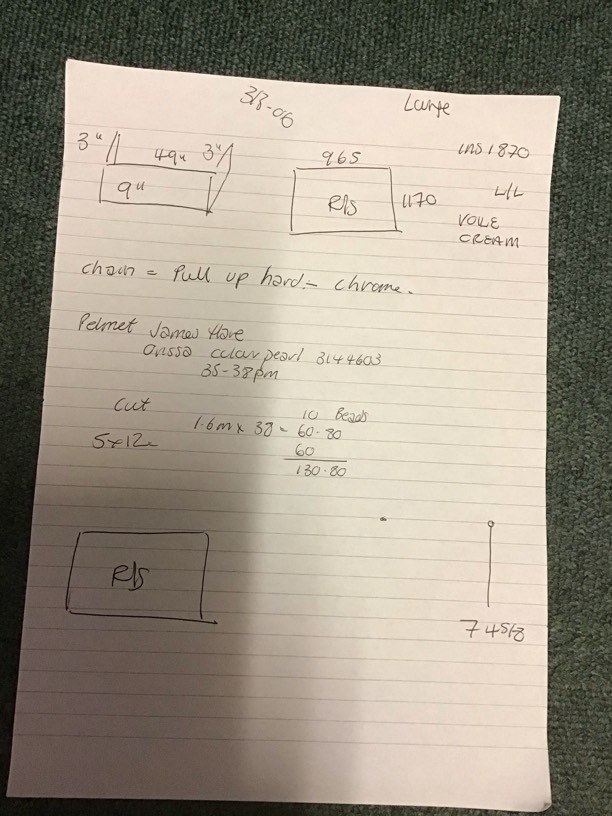 Large
3" 49" 3"
9"
965
R/S 1170
ins 1870
L/L
VOLE
CREAM
chain = Pull up hard = chrome.
Pelmet James Hare
Orissa colour pearl 3144603
35-38pm
Cut
10 Beads
1.6m x 38 = 60.80
60
130.80
R/S